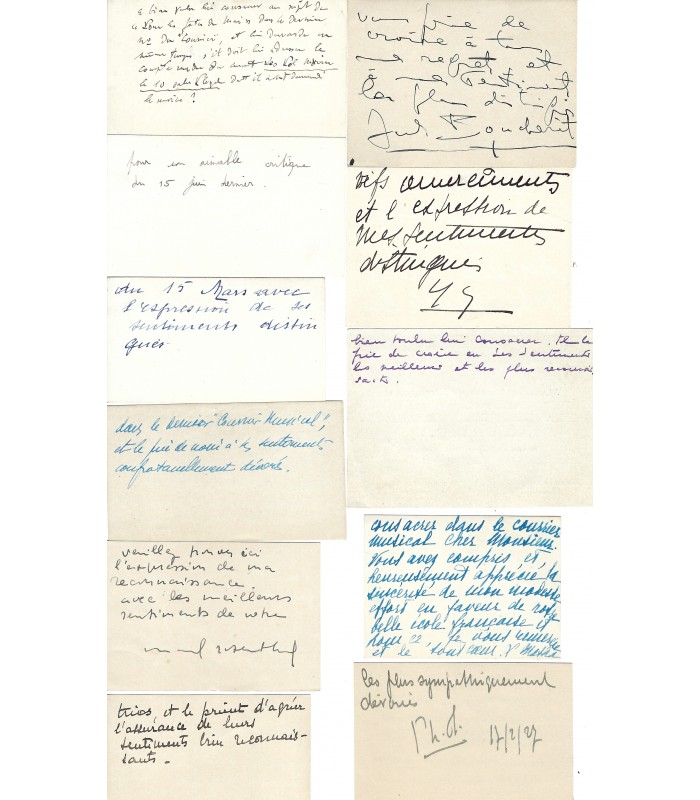 a bien voulu lui consacrer au sujet de
dans le dernier
n° du Courrier, et lui demande en
même temps, s'il doit lui
compte rendu du
le 10 salle Pleyel dont il avait demandé
le service ?
pour son aimable critique
du 15 juin dernier.
du 15 Mars avec
l'expression de ses
sentiments distin
gués
dans le dernier "Courrier Musical",
et le prie de croire à ses sentements
confraternellement dévoués.
veuillez trouver ici
l'expression de ma
reconnaissance
avec les meilleurs
sentiments de votre
manuel rosenthal
trios, et le prient d'agréer
l'assurance de leurs
sentiments bien reconnais-
sants.-
vous prie de
croire à tous
mes regrets et
à mes sentiments
les plus distingués
Jules Boucherit
vifs remerciements
et l'expression de
mes sentiments
distingués
bien voulu lui consacrer. Elle le
prie de croire en ses sentiments
les meilleurs et les plus reconnais
sants.
consacrer dans le courrier
musical cher Monsieur.
Vous avez compris et,
heureusement apprécié la
sincérité de mon modeste
effort en faveur de votre
belle école française et
pour ce, je vous remercie
et le tout cœur.
Les plus sympathiquement
dévoués
17/2/27